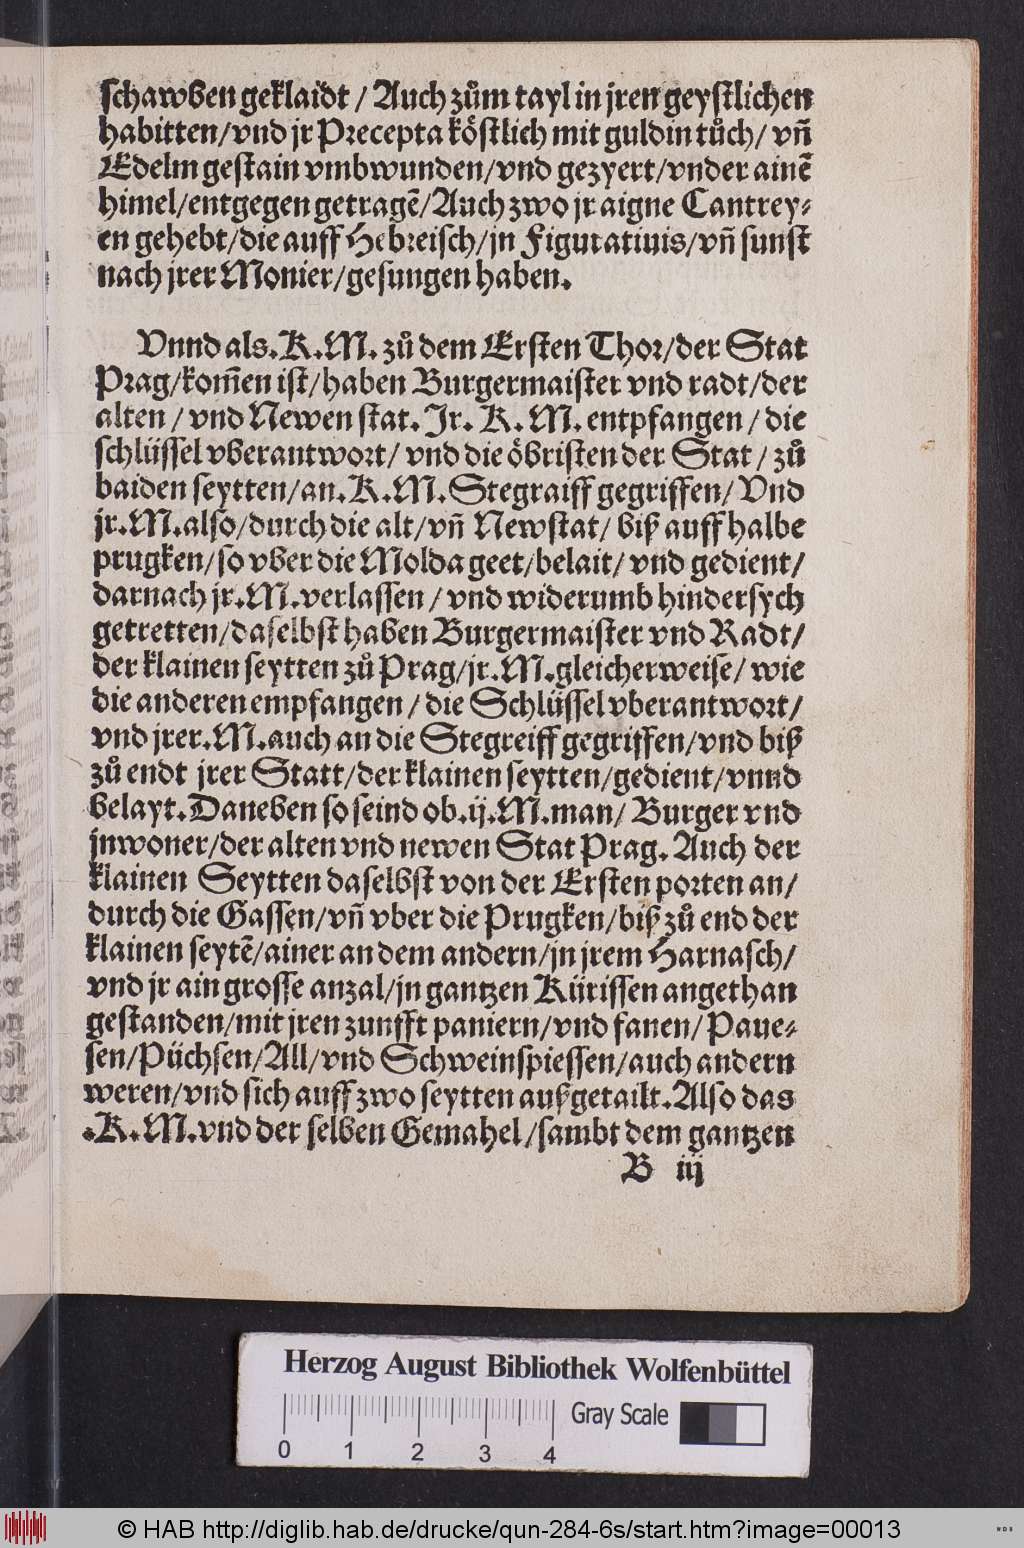 schawben geklaidt / Auch zům tayl in jren geystlichen
habitten/vnd jr Precepta köstlich mit guldin tůch/ vñ
Edelm gestain vmbwunden/vnd gezyert/vnder ainẽ
himel/entgegen getragẽ/Auch zwo jr aigne Cantrey⸗
en gehebt/die auff Hebreisch/jn Figuratiuis/vñ sunst
nach jrer Monier/gesungen haben.
Vnnd als.K.M. zů dem Ersten Thor/der Stat
Prag/kom̃en ist/haben Burgermaister vnd radt/der
alten / vnd Newen stat. Jr. K. M. entpfangen / die
schlüssel vberantwort/ vnd die öbristen der Stat / zů
baiden seytten/an.K.M.Stegraiff gegriffen/ Vnd
jr.M.also/durch die alt/vñ Newstat/ biß auff halbe
prugken/so vber die Molda geet/belait/ vnd gedient/
darnach jr.M.verlassen / vnd widerumb hindersych
getretten/daselbst haben Burgermaister vnd Radt/
der klainen seytten zů Prag/jr.M.gleicherweise/ wie
die anderen empfangen / die Schlüssel vberantwort/
vnd jrer.M.auch an die Stegreiff gegriffen/vnd biß
zů endt jrer Statt/der klainen seytten/gedient/vnnd
belayt.Daneben so seind ob.ij.M.man/ Burger vnd
jnwoner/der alten vnd newen Stat Prag. Auch der
klainen Seytten daselbst von der Ersten porten an/
durch die Gassen/vñ vber die Prugken/biß zů end der
klainen seytẽ/ainer an dem andern/jn jrem Harnasch/
vnd jr ain grosse anzal/jn gantzen Kürissen angethan
gestanden/mit jren zunfft paniern/vnd fanen/ Paue⸗
sen/Püchsen/All/vnd Schweinspiessen/auch andern
weren/vnd sich auff zwo seytten außgetailt.Also das
.K.M.vnd der selben Gemahel/sambt dem gantzen
B iij
Herzog August Bibliothek Wolfenbüttel
Gray Scale
0 1 2 3 4
© HAB http://diglib.hab.de/drucke/qun-284-6s/start.htm?image=00013